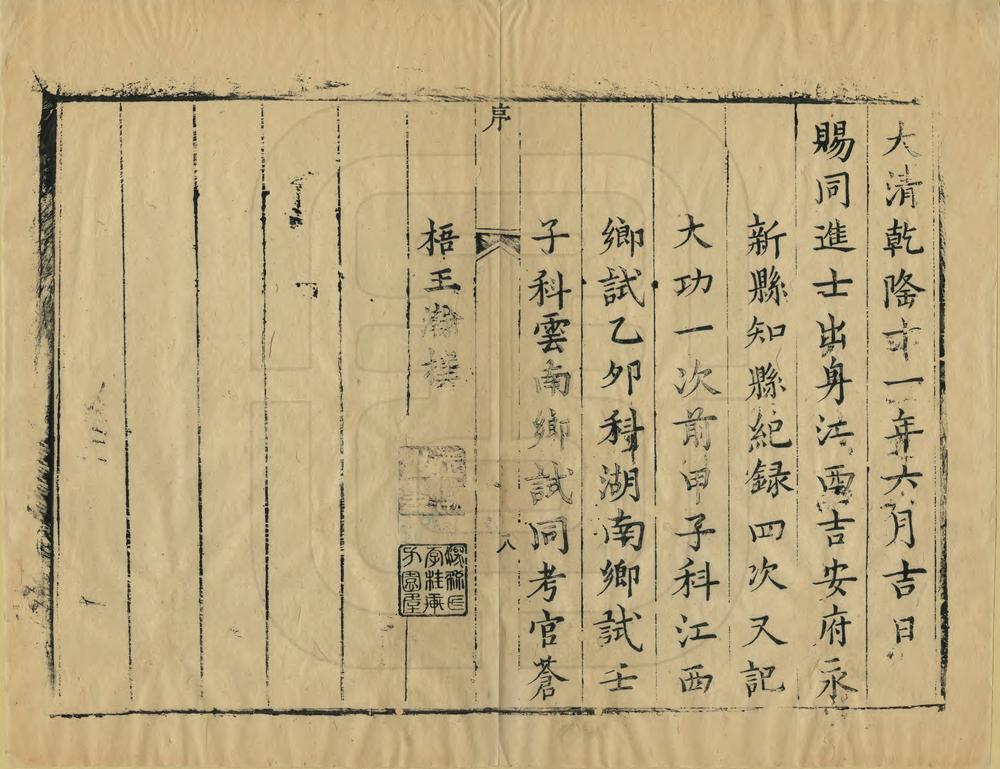 大清乾隆十一年六月吉日
賜同進士出身江西吉安府永
新縣知縣紀録四次又記
大功一次前甲子科江西
鄉試乙夘科湖南鄉試壬
子科雲南鄉試同考官蒼
序
八
梧王瀚撰